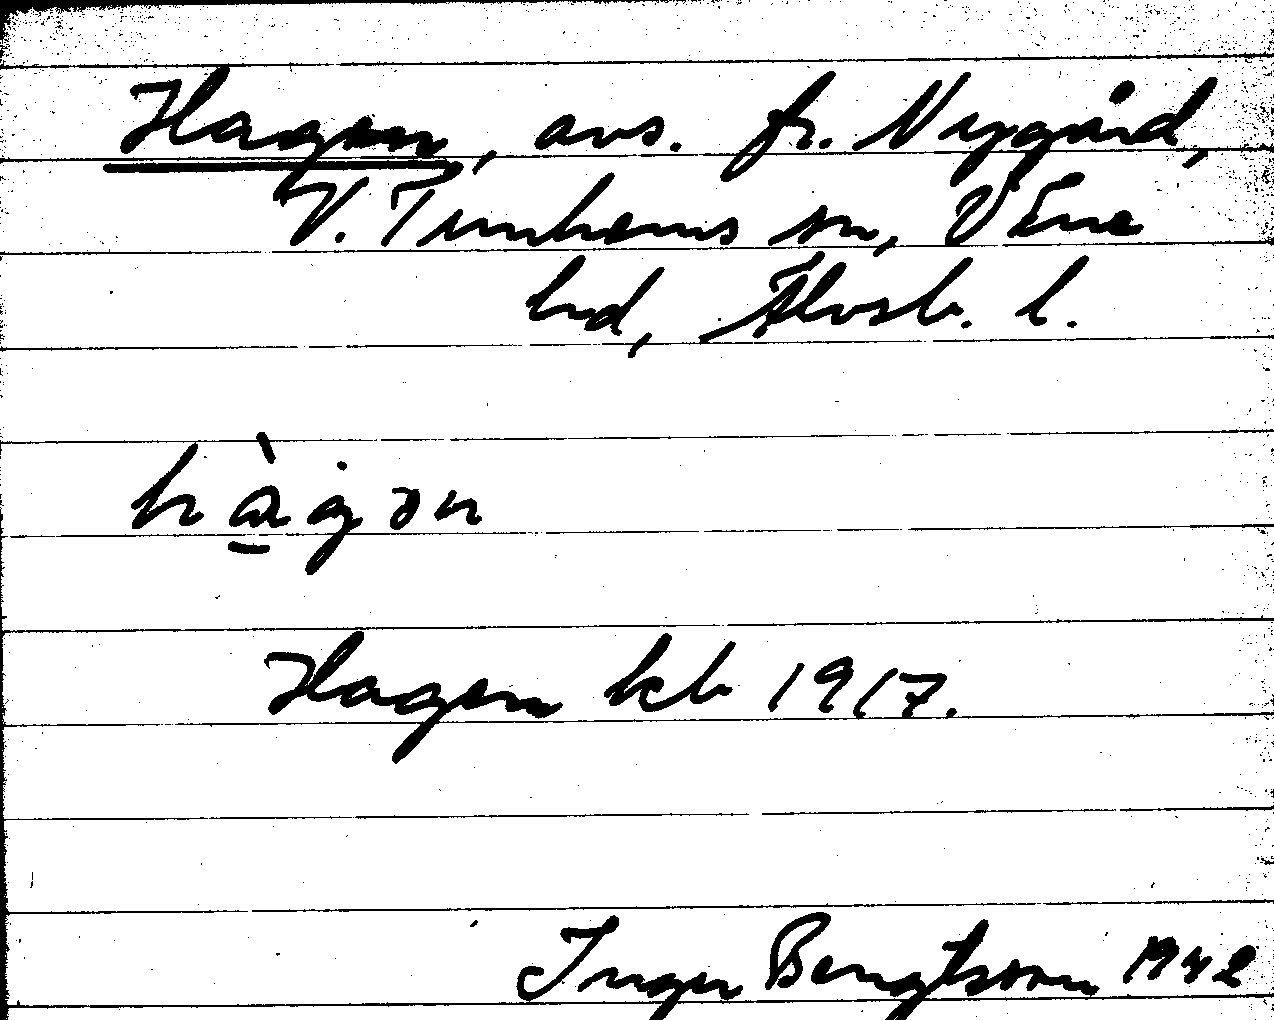 Hagen, avs. fr. Nygård,
V. Tunhems sn, Väne
hd, Älvsb. l.
hà̱gən
Hagen kb 1917.
Inger Bengtsson 1942